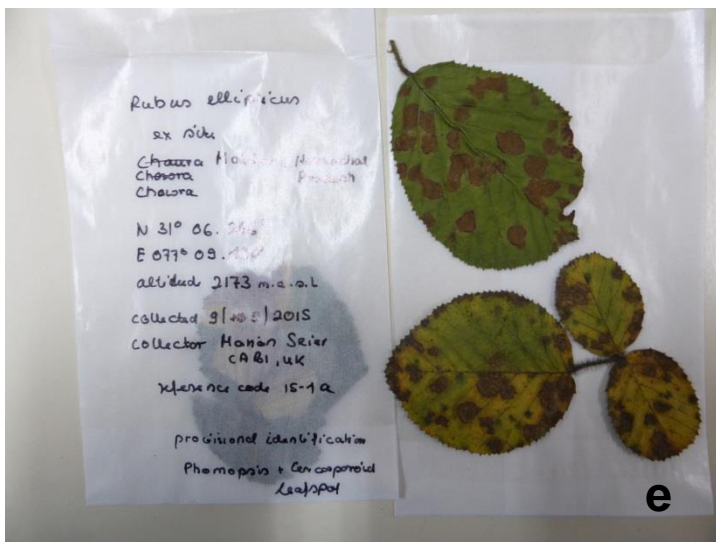 Rubus ellipticus
ex situ
Chaura Himachal
Chosora Pradesh
Chowora
N 31° 06.
E 077° 09.
altitud 2173 m.a.s.L
collected 9/ /2015
collector Marion Seier
CABI, UK
reference code 15-1a
provisional identification
Phomopsis + Cercosporoid
leafspot
e